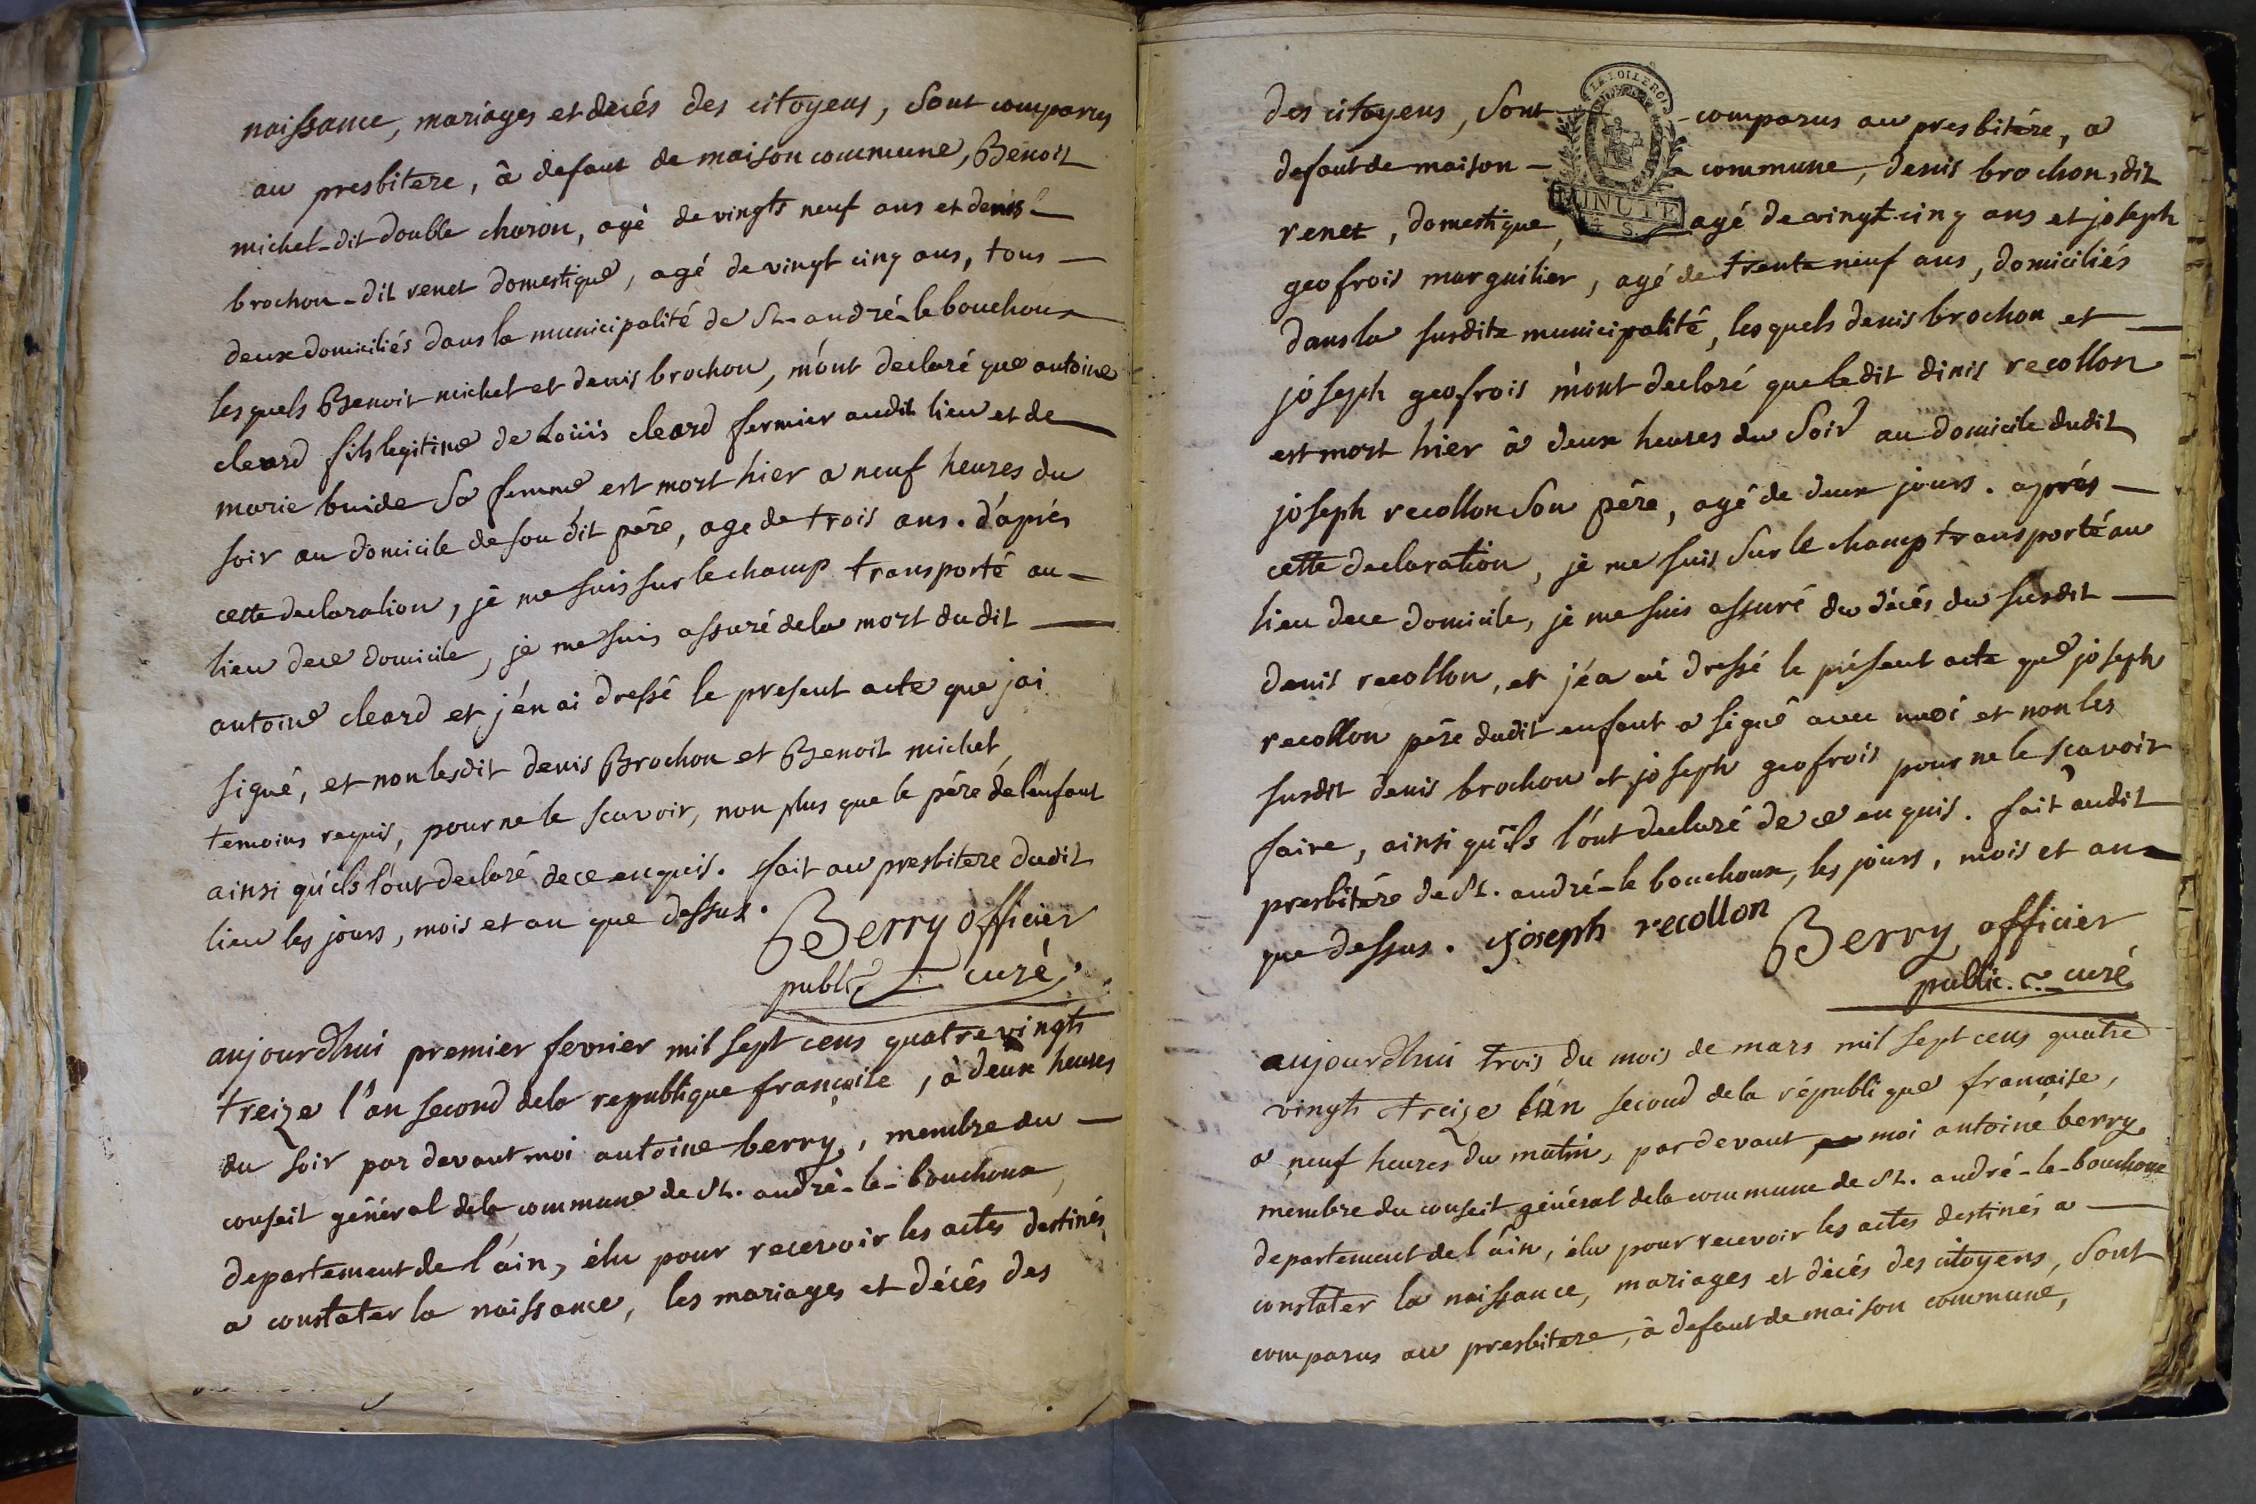 naissance, mariages et decés des citoyens, sont comparus
au presbitere, â defaut de maison commune, Benoit
michel-dit double charon, agé de vingts neuf ans et denis
brochon-dit renet domestique, agé de vingt cinq ans, tous
deux domiciliés dans la municipalité de St-andré-le bouchoux
lesquels Benoit michel et denis brochon, m'ont declaré que antoine
cleard fils legitime de Loüis cleard fermier audit lieu et de
marie buide sa femme est mort hier a neuf heures du
soir au domicile de son dit pére, age de trois ans. d'aprés
cette declaration, je me suis sur le champ transporté au
lieu de ce domicile, je me suis assuré de la mort dudit
antoine cleard et j'én ai dressé le present acte que jai
signé, et non lesdit denis Brochon et Benoit michel,
temoins requis, pour ne le scavoir, non plus que le pére de l'enfant
ainsi qu'ils l'ont declaré de ce enquis. fait au presbitere dudit
lieu les jours, mois et an que dessus.
Berry officier
public curé
aujourdhui premier fevrier mil sept cens quatre vingts
treize l'an second dela republique francaise, à deux heures
du soir par devant moi antoine berry, membre du
conseil général dela commune de St. andré-le-bouchoux,
departement de l'áin, élu pour recevoir les actes destinés
a constater la naissance, les mariages et décés des
des citoyens, sont comparus au presbitére, a
defaut de maison commune, denis brochon, dit
renet, domestique, agé de vingt cinq ans et joseph
geofrois marguilier, agé de trente neuf ans, domiciliés
dans la susdite municipalité, les quels denis brochon et
joseph geofrois m'ont declaré que ledit dinis recollon
est mort hier â deux heures du soir au domicile dudit
joseph recollon son pére, agé de deux jours. aprés
cette declaration, je me suis sur le champ transporté au
lieu de ce domicile, je me suis assuré du décés du susdit
denis recollon, et j'éa ai dressé le présent acte que joseph
recollon pére dudit enfant a signé avec moi et non les
susdit denis brochon et joseph geofrois pour ne le scavoir
faire, ainsi qu'ils l'ont declaré de ce enquis. fait audit
presbitére de St. andré-le bouchoux, les jours, mois et an
que dessus. joseph recollon
Berry officier
public. curé
aujourdhui trois du mois de mars mil sept cens quatre
vingts treize l'an second dela république francaise,
a neuf heures du matin, par devant moi antoine berry
membre du conseil général dela commune de St. andré-le-bouchoux
departement de l'áin, élu pour recevoir les actes destinés a
constater la naissance, mariages et décés des citoyens, sont
comparus au presbitere, à defaut de maison commune,